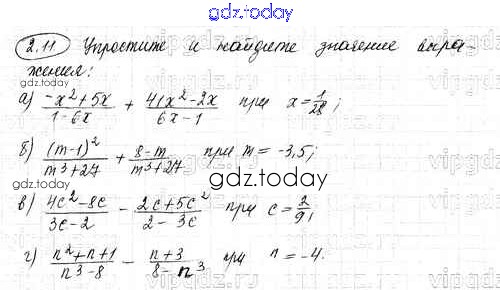 gdz.today
2.11 Упростите и найдите значение выра-
жения:
а) (-x²+5x)/(1-6x) + (41x²-2x)/(6x-1) при x=1/28;
б) (m-1)²/(m³+27) + (8-m)/(m³+27) при m=-3,5;
gdz.today
в) (4c²-8c)/(3c-2) - (2c+5c²)/(2-3c) при c=2/9;
г) (n²+n+1)/(n³-8) - (n+3)/(8-n³) при n=-4.
gdz.today